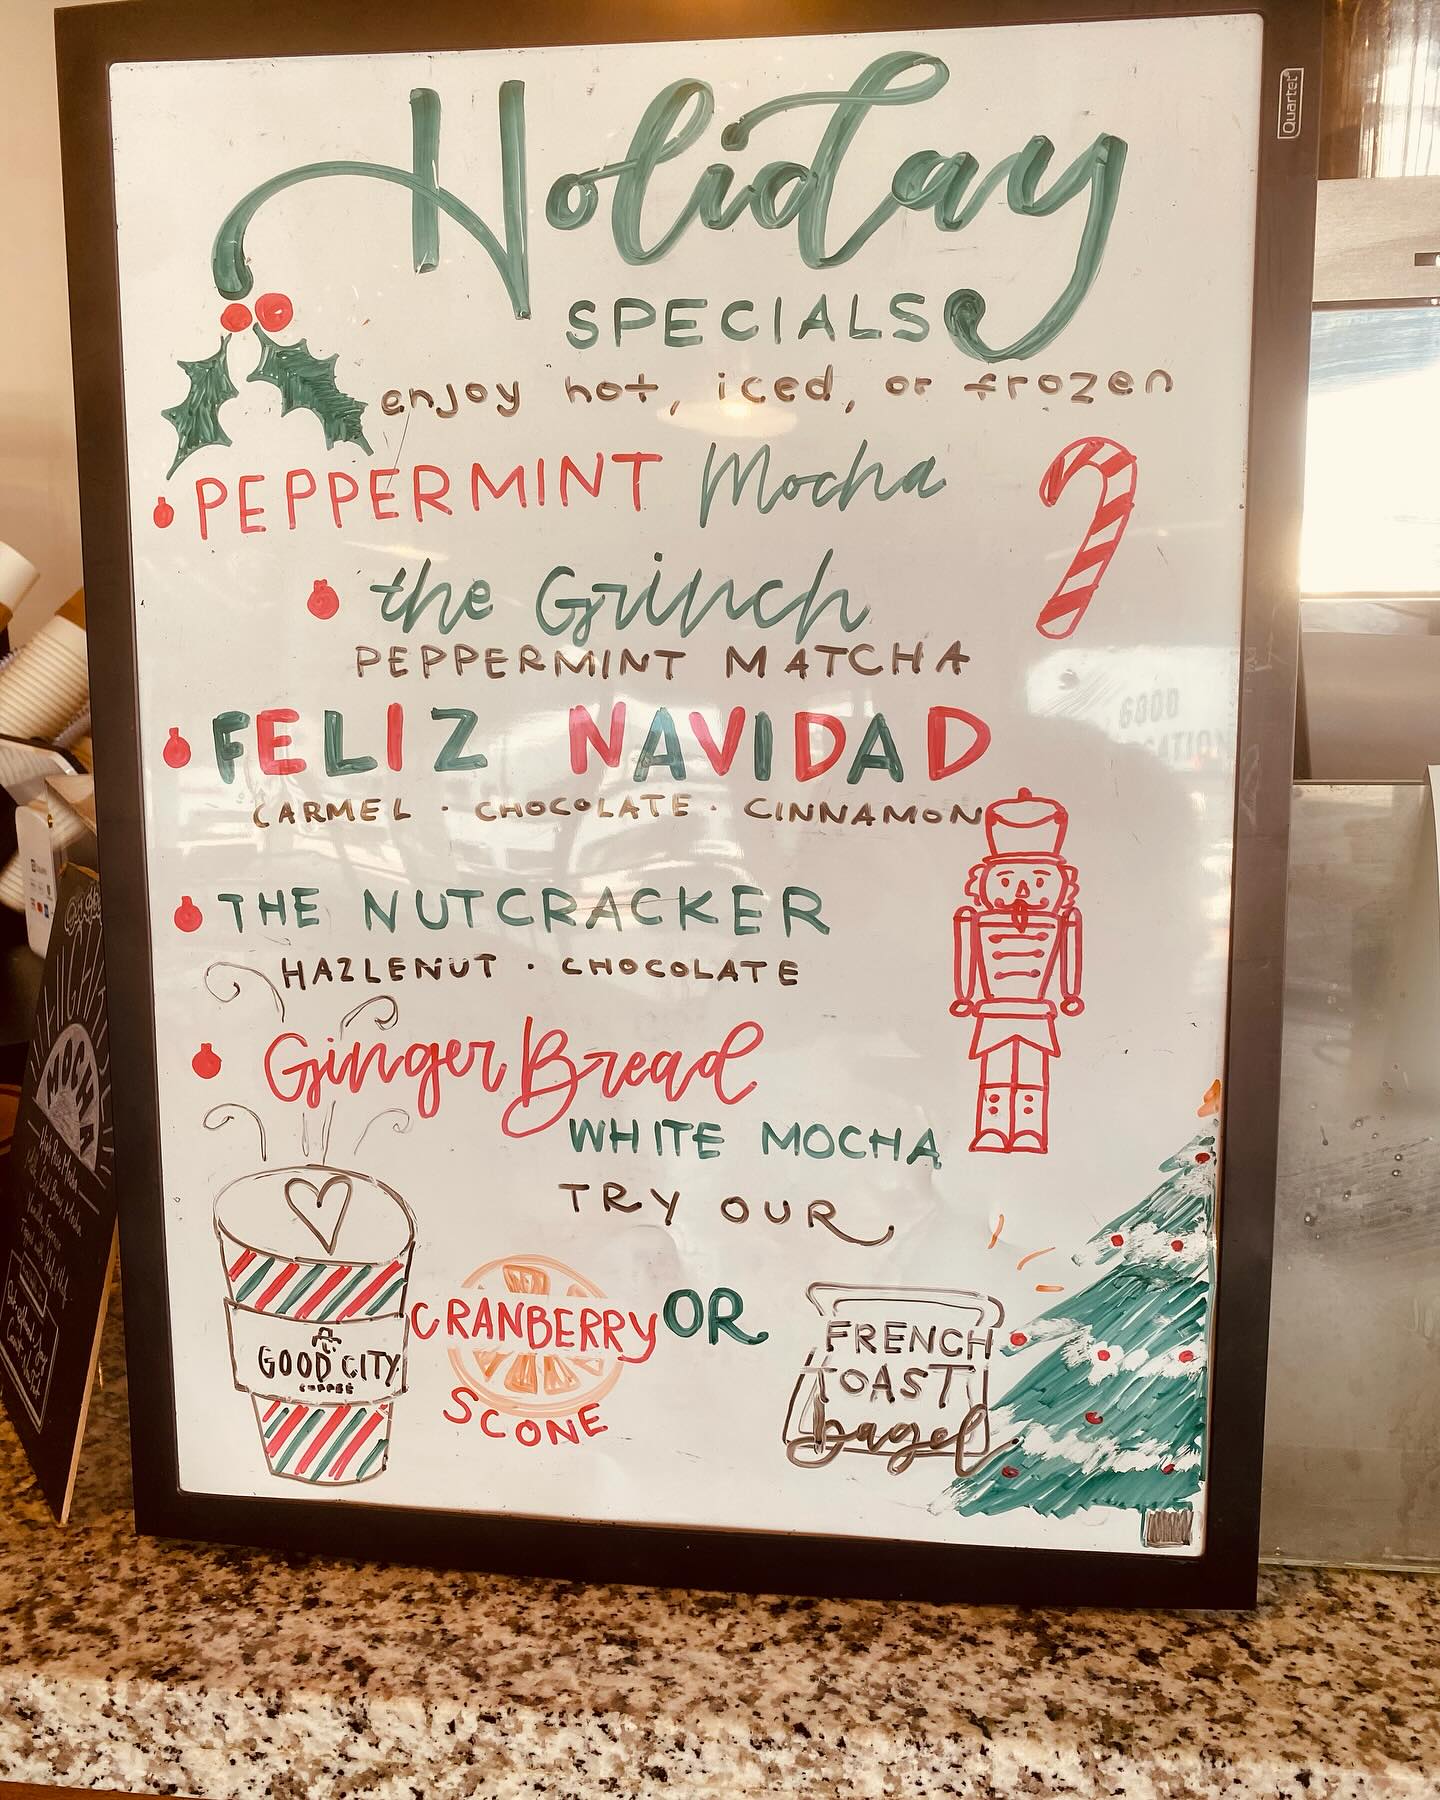 Holiday
SPECIALS
enjoy hot, iced, or frozen
PEPPERMINT Mocha
the Grinch
PEPPERMINT MATCHA
FELIZ NAVIDAD
CARMEL · CHOCOLATE · CINNAMON
THE NUTCRACKER
HAZLENUT · CHOCOLATE
GingerBread
WHITE MOCHA
TRY OUR
CRANBERRY OR
SCONE
FRENCH
TOAST
bagel
GOOD CITY
COFFEE
Quartet
MOCHA